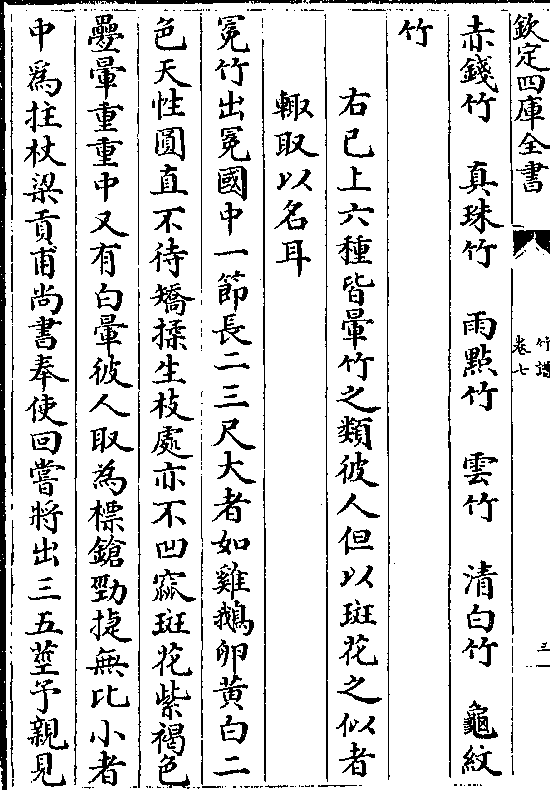 欽定四庫全書
竹譜
卷七
三
赤錢竹　真珠竹　雨點竹　雲竹　清白竹　龜紋
竹
右已上六種皆暈竹之類彼人但以斑花之似者
輙取以名耳
冕竹出冕國中一節長二三尺大者如雞鵝卵黄白二
色天性圓直不待矯揉生枝處亦不凹窳斑花紫褐色
疊暈重重中又有白暈彼人取為標鎗勁捷無比小者
中爲拄杖梁貢甫尚書奉使回嘗將出三五莖予親見